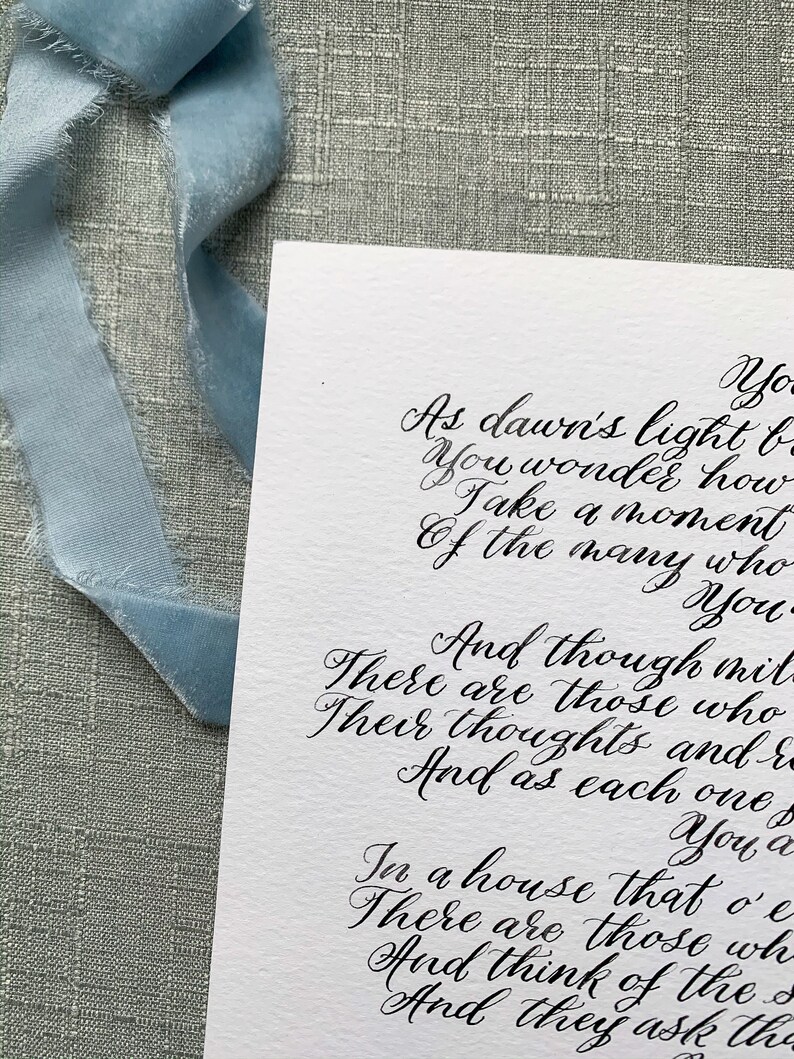 You
As dawn's light b
You wonder how
Take a moment
Of the many who
You
And though mil
There are those who
Their thoughts and
And as each one
You a
In a house that o'e
There are those wh
And think of the s
And they ask tha